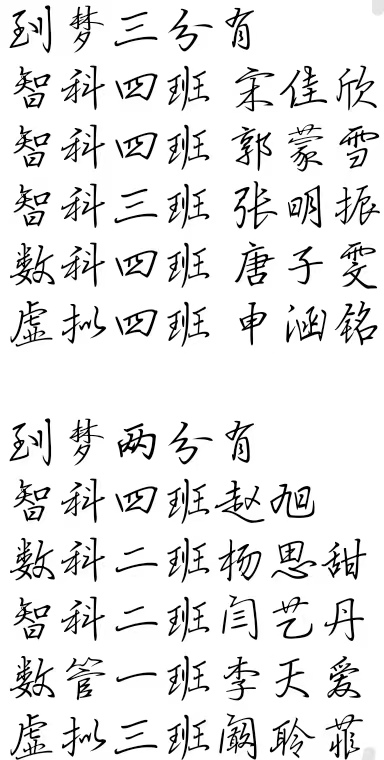 到梦三分有
智科四班 宋佳欣
智科四班 郭蒙雪
智科三班 张明振
数科四班 唐子雯
虚拟四班 申涵铭
到梦两分有
智科四班赵旭
数科二班杨思甜
智科二班闫艺丹
数管一班李天爱
虚拟三班阚聆菲